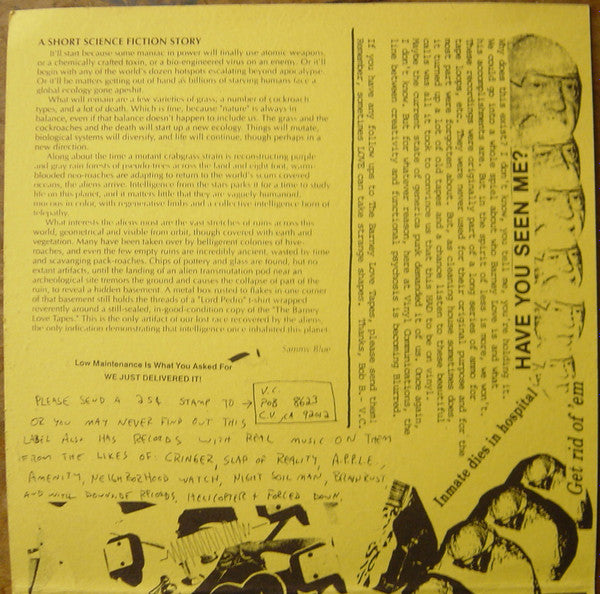 A SHORT SCIENCE FICTION STORY
It'll start because some maniac in power will finally use atomic weapons,
or a chemically crafted toxin, or a bio-engineered virus on an enemy. Or it'll
begin with any of the world's dozen hotspots escalating beyond apocalypse.
Or it'll be matters getting out of hand as billions of starving humans face a
global ecology gone apeshit.
What will remain are a few varieties of grass, a number of cockroach
types, and a lot of death. Which is fine, because "nature" is always in
balance, even if that balance doesn't happen to include us. The grass and the
cockroaches and the death will start up a new ecology. Things will mutate,
biological systems will diversify, and life will continue, though perhaps in a
new direction.
Along about the time a mutant crabgrass strain is reconstructing purple
and gray rain forests of pseudo-trees across the land and eight foot, warm-
blooded neo-roaches are adapting to return to the world's scum covered
oceans, the aliens arrive. Intelligence from the stars parks it for a time to study
life on this planet, and it matters little that they are vaguely humanoid,
mucous in color, with regenerative limbs and a collective intelligence born of
telepathy.
What interests the aliens most are the vast stretches of ruins across this
world, geometrical and visible from orbit, though covered with earth and
vegetation. Many have been taken over by belligerent colonies of hive-
roaches, and even the few empty ruins are incredibly ancient, wasted by time
and scavanging pack-roaches. Chips of pottery and glass are found, but no
extant artifacts, until the landing of an alien transmutation pod near an
archeological site tremors the ground and causes the collapse of part of the
ruin, to reveal a hidden basement. A metal box rusted to flakes in one corner
of that basement still holds the threads of a "Lord Pedro" t-shirt wrapped
reverently around a still-sealed, in-good-condition copy of the "The Barney
Love Tapes." This is the only artifact of our lost race recovered by the aliens,
the only indication demonstrating that intelligence once inhabited this planet.
Sammy Blue
Low Maintenance Is What You Asked For
WE JUST DELIVERED IT!
PLEASE SEND A 25¢ STAMP TO →
V.C.
POB 8623
C.V. CA 92012
OR YOU MAY NEVER FIND OUT THIS
LABEL ALSO HAS RECORDS WITH REAL MUSIC ON THEM
FROM THE LIKES OF: CRINGER, SLAP OF REALITY, A.P.P.L.E.,
AMENITY, NEIGHBORHOOD WATCH, NIGHT SOIL MAN, BRAINRUST
AND WITH DOWNSIDE RECORDS, HELICOPTER + FORCED DOWN.
HAVE YOU SEEN ME?
Why does this exist? I don't know, you tell me, you're holding it.
We could go into a whole spiel about who Barney Love is and what
his accomplishments are. But in the spirit of less is more, we won't.
These recordings were originally part of a long series of ammo for
tape loops, etc. They were never used for their original purpose and for the
most part were forgotten about. But, as cleaning house sometimes does
it turned up a lot of old tapes and a chance listen to these beautiful
calls was all it took to convince us that this HAD to be on vinyl.
Maybe the current state of generica punk demanded it of us. Once again,
I don't know. But for whatever reason, here at Vinyl Communications, the
line between creativity and functional psychosis is becoming Blurred.
If you have any follow ups to The Barney Love Tapes, please send them!
Remember, sometimes LOVE can take strange shapes. Thanks, Bob B.- V.C.
Inmate dies in hospital
Get rid of 'em